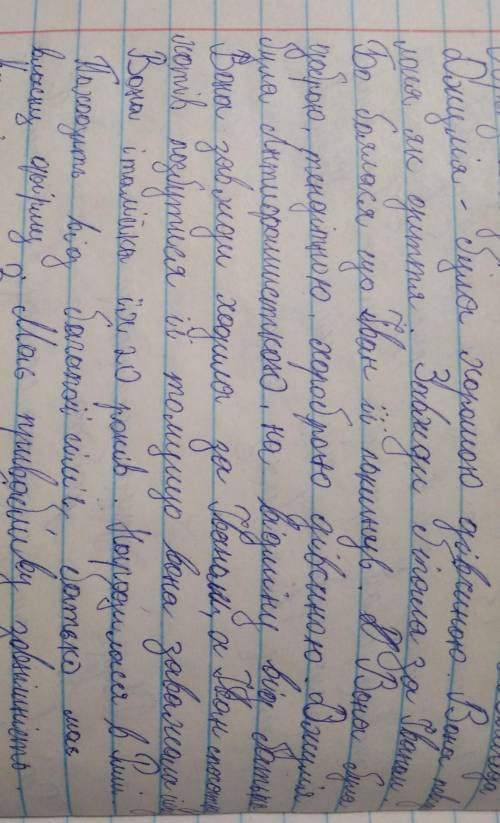 Джулія - була хорошою дівчиною. Вона
як життя. Завжди бігала за Іваном,
Бо боялася що Іван її покинув. Вона була
доброю, тендітною, хороброю дівчиною. Джулія
була Антифашисткою, на відміну від батька
Вона завжди ходила за Іваном, а Іван спочатку
хотів позбутися її томущо вона заважала
Вона італійка їй 20 років. Народилася в Римі
Походить від багатої сім'ї, батько має
власну фірму. Має привабливу зовнішність.